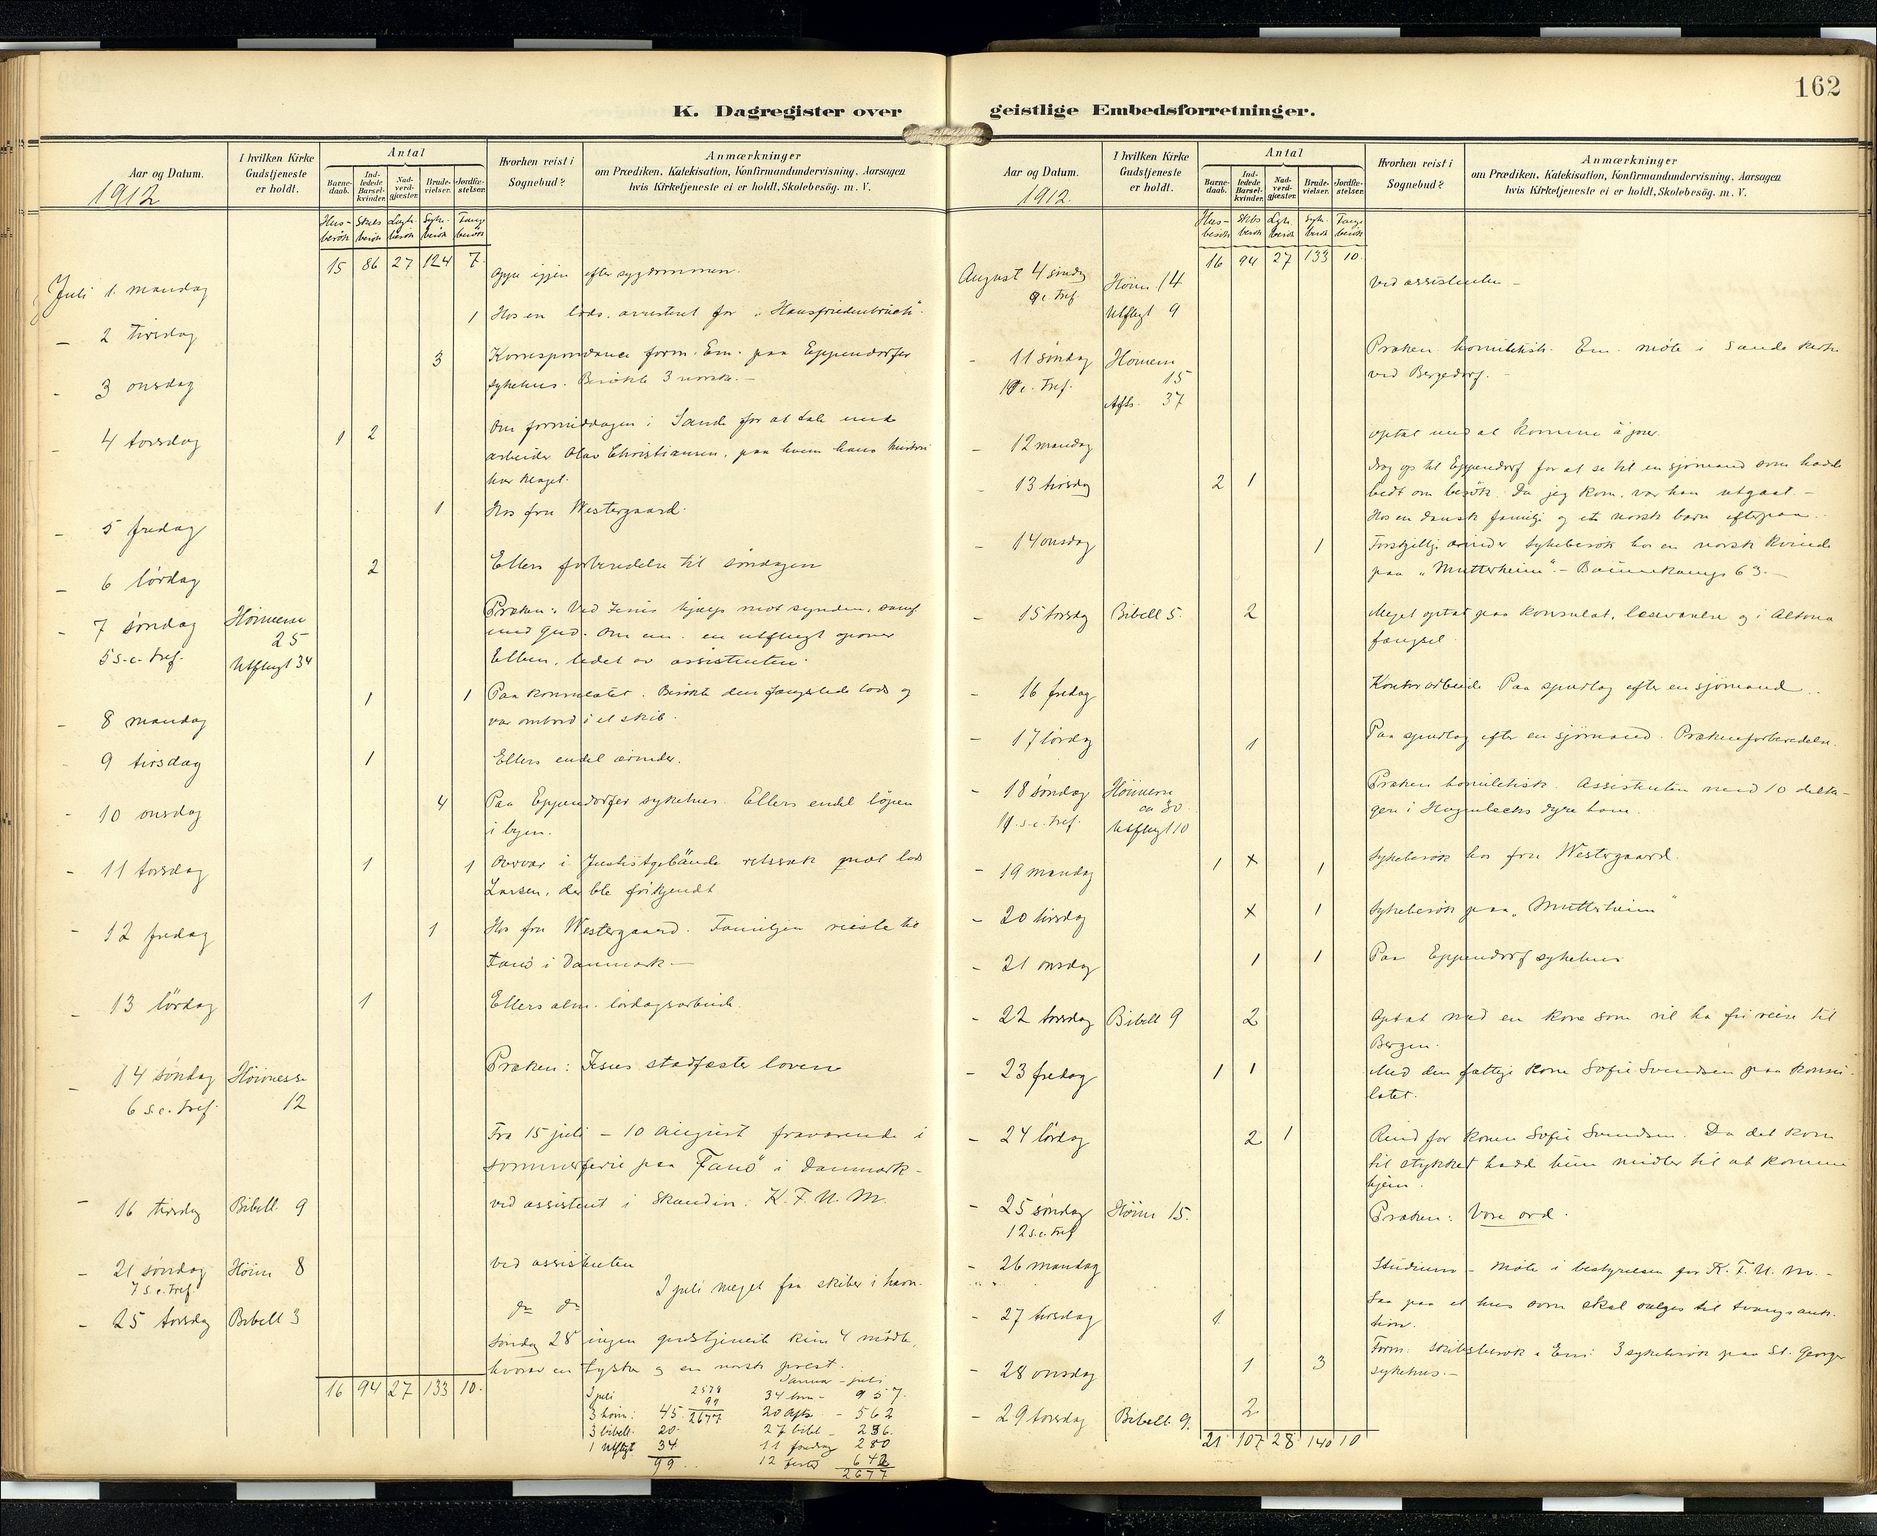 162
K. Dagregister over geistlige Embedsforretninger.
Aar og Datum.
1912
I hvilken Kirke Gudstjeneste er holdt.
Antal
Barnedaab.
Indledede Barselkvinder.
Nadverdgjæster.
Brudevielser.
Jordfæstelser.
Hvorhen reist i Sognebud?
Anmærkninger
om Prædiken, Katekisation, Konfirmandundervisning, Aarsagen
hvis Kirketjeneste ei er holdt, Skolebesøg. m. V.
Husbesök Skibsbesök Sykebesök Fangebesök
15 86 27 124 7
Juli 1. mandag
Oppe igjen efter sygdommen.
2 tirsdag 1 Hos en lods, arresteret for „Hausfriedenbruch".
3 onsdag 3 Korrespondance form. Em. paa Eppendorfer
sykehus. Besökte 3 norske. –
4 torsdag 1 2 Om formiddagen i Sande for at tale med
arbeider Olav Christiansen, paa hvem hans hustru
har klaget.
5 fredag 1 Hos fru Westergaard.
6 lördag 2 Ellers forberedelse til söndagen
7 söndag Höimesse 25 Præken: Ved Jesus hjælp mot synden, samf
5 s. e. tref. Utflugt 34 med Gud. Om em. en utflugt opover
Elben, ledet av assistenten.
8 mandag 1 1 Paa konsulatet. Besökte den fængslede lods og
var ombord i et skib.
9 tirsdag 1 Ellers endel ærinder.
10 onsdag 4 Paa Eppendorfer sykehus. Ellers endel löpen
i byen.
11 torsdag 1 1 Overvar i Justistgebäude retssak mot lods
Larsen, der ble frikjendt
12 fredag 1 Hos fru Westergaard. Familjen reiste til
Fanö i Danmark –
13 lördag 1 Ellers alm. lördagsarbeide.
14 söndag Höimesse Præken: Jesus stadfæster loven
6 s. e. tref. 12
Fra 15 juli – 10 august fraværende i
sommerferie paa Fanö i Danmark –
16 tirsdag Bibell. 9 ved assistent i Skandin. K. F. U. M.
21 söndag Höim 8 ved assistenten
7 s. e. tref.
I juli meget faa skiber i havn.
25 torsdag Bibell 3 do do
Söndag 28 ingen gudstjeneste kun 4 mödte,
hvorav en tysker og en norsk prest.
16 94 27 133 10.
I juli 2578 Januar – juli
99 34 hm – 957.
3 höim: 45. 2677 20 Afts – 562
3 bibell. 20. 27 bibl – 236.
1 utflgt 34 11 fredag 280
99 12 fester 642
2677
Aar og Datum.
1912.
I hvilken Kirke Gudstjeneste er holdt.
Antal
Barnedaab.
Indledede Barselkvinder.
Nadverdgjæster.
Brudevielser.
Jordfæstelser.
Hvorhen reist i Sognebud?
Anmærkninger
om Prædiken, Katekisation, Konfirmandundervisning, Aarsagen
hvis Kirketjeneste ei er holdt, Skolebesög. m. V.
Husbesök Skibsbesök Sykebesök Fangebesök
16 94 27 133 10.
August 4 söndag Höim 14 ved assistenten –
9 e. tref. Utflugt 9
11 söndag Höimesse 15 Præken homiletisk. Em. möte i Sande kirke
10 e. tref. Afts. 37 ved Bergedorf. –
12 mandag optat med at komme à jour.
13 tirsdag 2 1 Drog op til Eppendorf for at se til en sjömand som hadde
bedt om besök. Da jeg kom, var han utgaat. –
Hos en dansk familje og et norsk barn efterpaa.
14 onsdag 1 Forskjellige ærinder sykebesök hos en norsk kvinde
paa „Mutterheim" – 63. –
15 torsdag Bibell 5. 2 Meget optat paa konsulat, læseværelse og i Altona
fængsel
16 fredag Kontorarbeide Paa spurlag efter en sjömand.
17 lördag 1 Paa spurlag efter en sjömand. Prækenforberedelse.
18 söndag Höimesse ca 30 Præken homiletisk. Assistenten med 10 delta-
11. s. e. tref. Utflugt 10 gere i Hagenbecks dyrehave.
19 mandag 1 x 1 Sykebesök hos fru Westergaard.
20 tirsdag x 1 Sykebesök paa „Mutterheim"
21 onsdag 1 1 Paa Eppendorf sykehus
22 torsdag Bibell 9 2 Optat med en kone som vil ha fri reise til
Bergen.
23 fredag 1 1 Med den fattige kone Sofie Svendsen paa konsu-
latet.
24 lördag 2 1 Rend for konen Sofie Svendsen. Da det kom
til stykket hadde hun midler til at komme
hjem.
25 söndag Höim 15. Præken: Vore ord.
12 s. e. tref
26 mandag Studium – Möte i bestyrelsen for K. F. U. M. –
27 tirsdag 1 Saa paa et hus som skal sælges til tvangsauk-
tion.
28 onsdag 1 3 Form: skibsbesök. Em: 3 sykebesök paa St. Georger
sykehus. –
29 torsdag Bibell. 9. 2
21 107 28 140 10